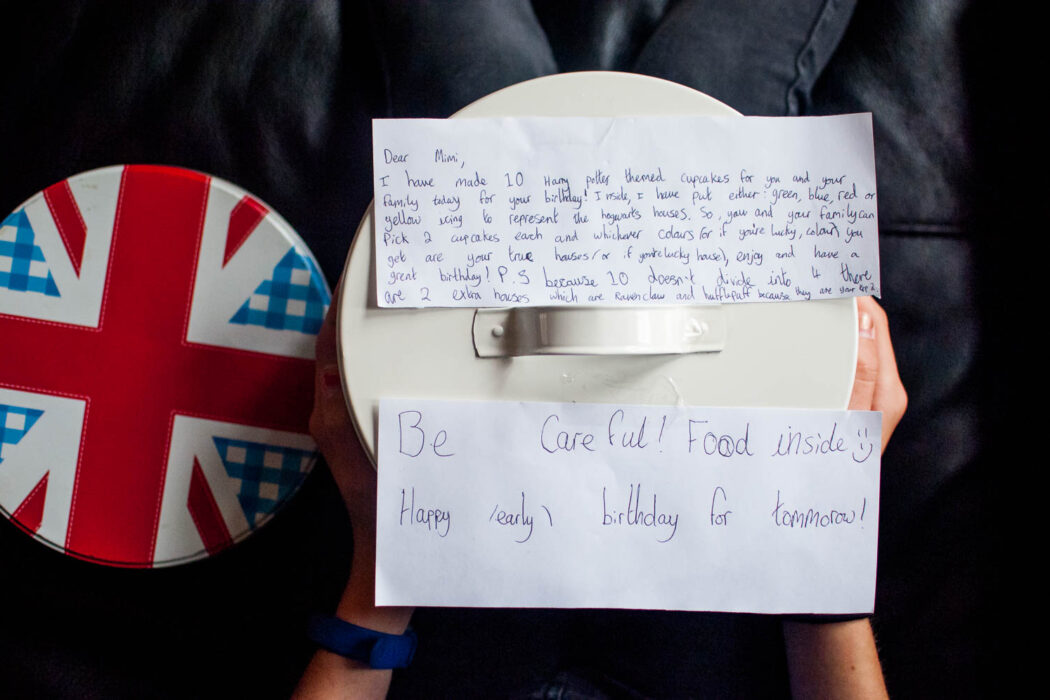 Dear Mimi,
I have made 10 Harry potter themed cupcakes for you and your
family today for your birthday! Inside, I have put either: green, blue, red or
yellow icing to represent the hogwarts houses. So, you and your family can
Pick 2 cupcakes each and whichever colours (or if you're lucky, colour) you
get are your true houses/(or if you're lucky house), enjoy and have a
great birthday! P.S because 10 doesn't divide into 4 there
are 2 extra houses which are Ravenclaw and hufflepuff because they are your top 2.
Be Careful! Food inside
Happy (early) birthday for tommorow!